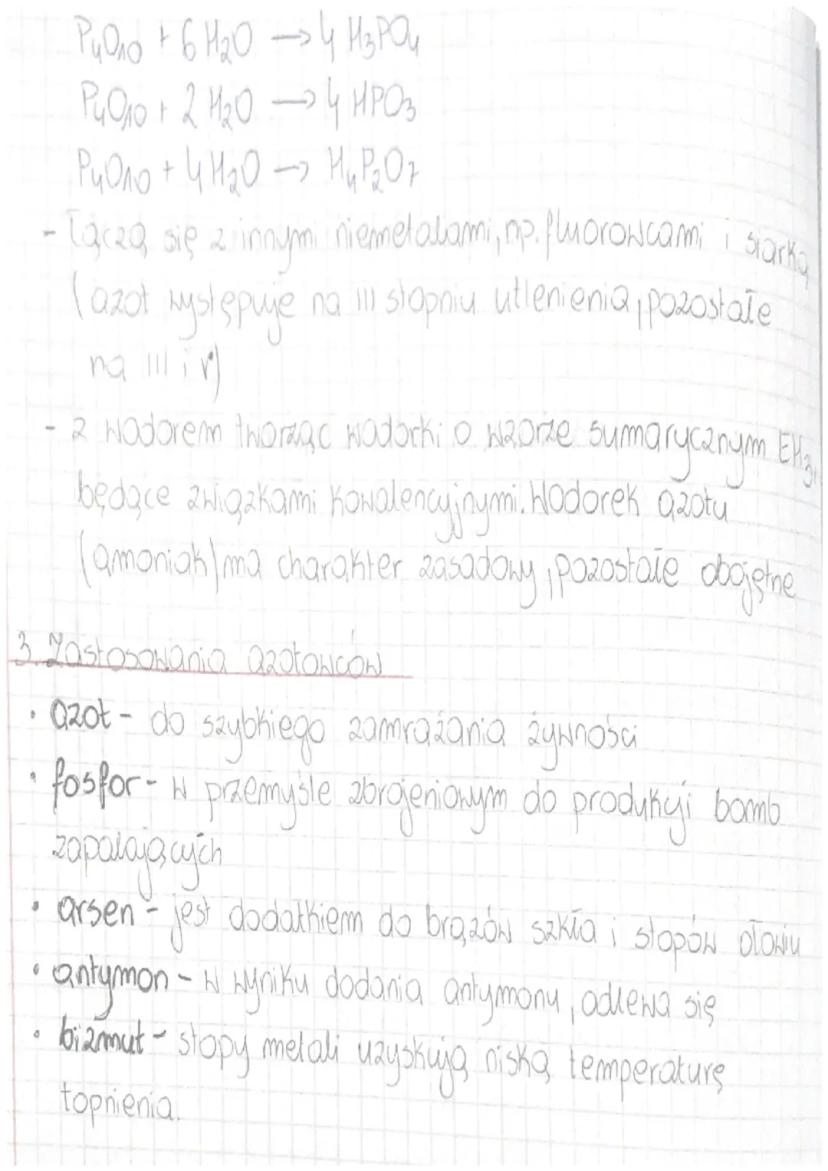 P₄O₁₀ + 6 H₂O → 4 H₃PO₄
P₄O₁₀ + 2 H₂O → 4 HPO₃
P₄O₁₀ + 4 H₂O → H₄P₂O₇
- łączą się z innymi niemetalami, np. fluorowcami i siarką
(azot występuje na III stopniu utlenienia, pozostałe
na III i V)
- z wodorem tworząc wodorki o wzorze sumarycznym EH₃,
będące związkami kowalencyjnymi. Wodorek azotu
(amoniak) ma charakter zasadowy, pozostałe obojętne
3. Zastosowania azotowców
• azot - do szybkiego zamrażania żywności
• fosfor - w przemyśle zbrojeniowym do produkcji bomb
zapalających
• arsen - jest dodatkiem do brązów szkła i stopów ołowiu
• antymon - w wyniku dodania antymonu, odlewa się
• bizmut - stopy metali uzyskują niską temperaturę
topnienia.